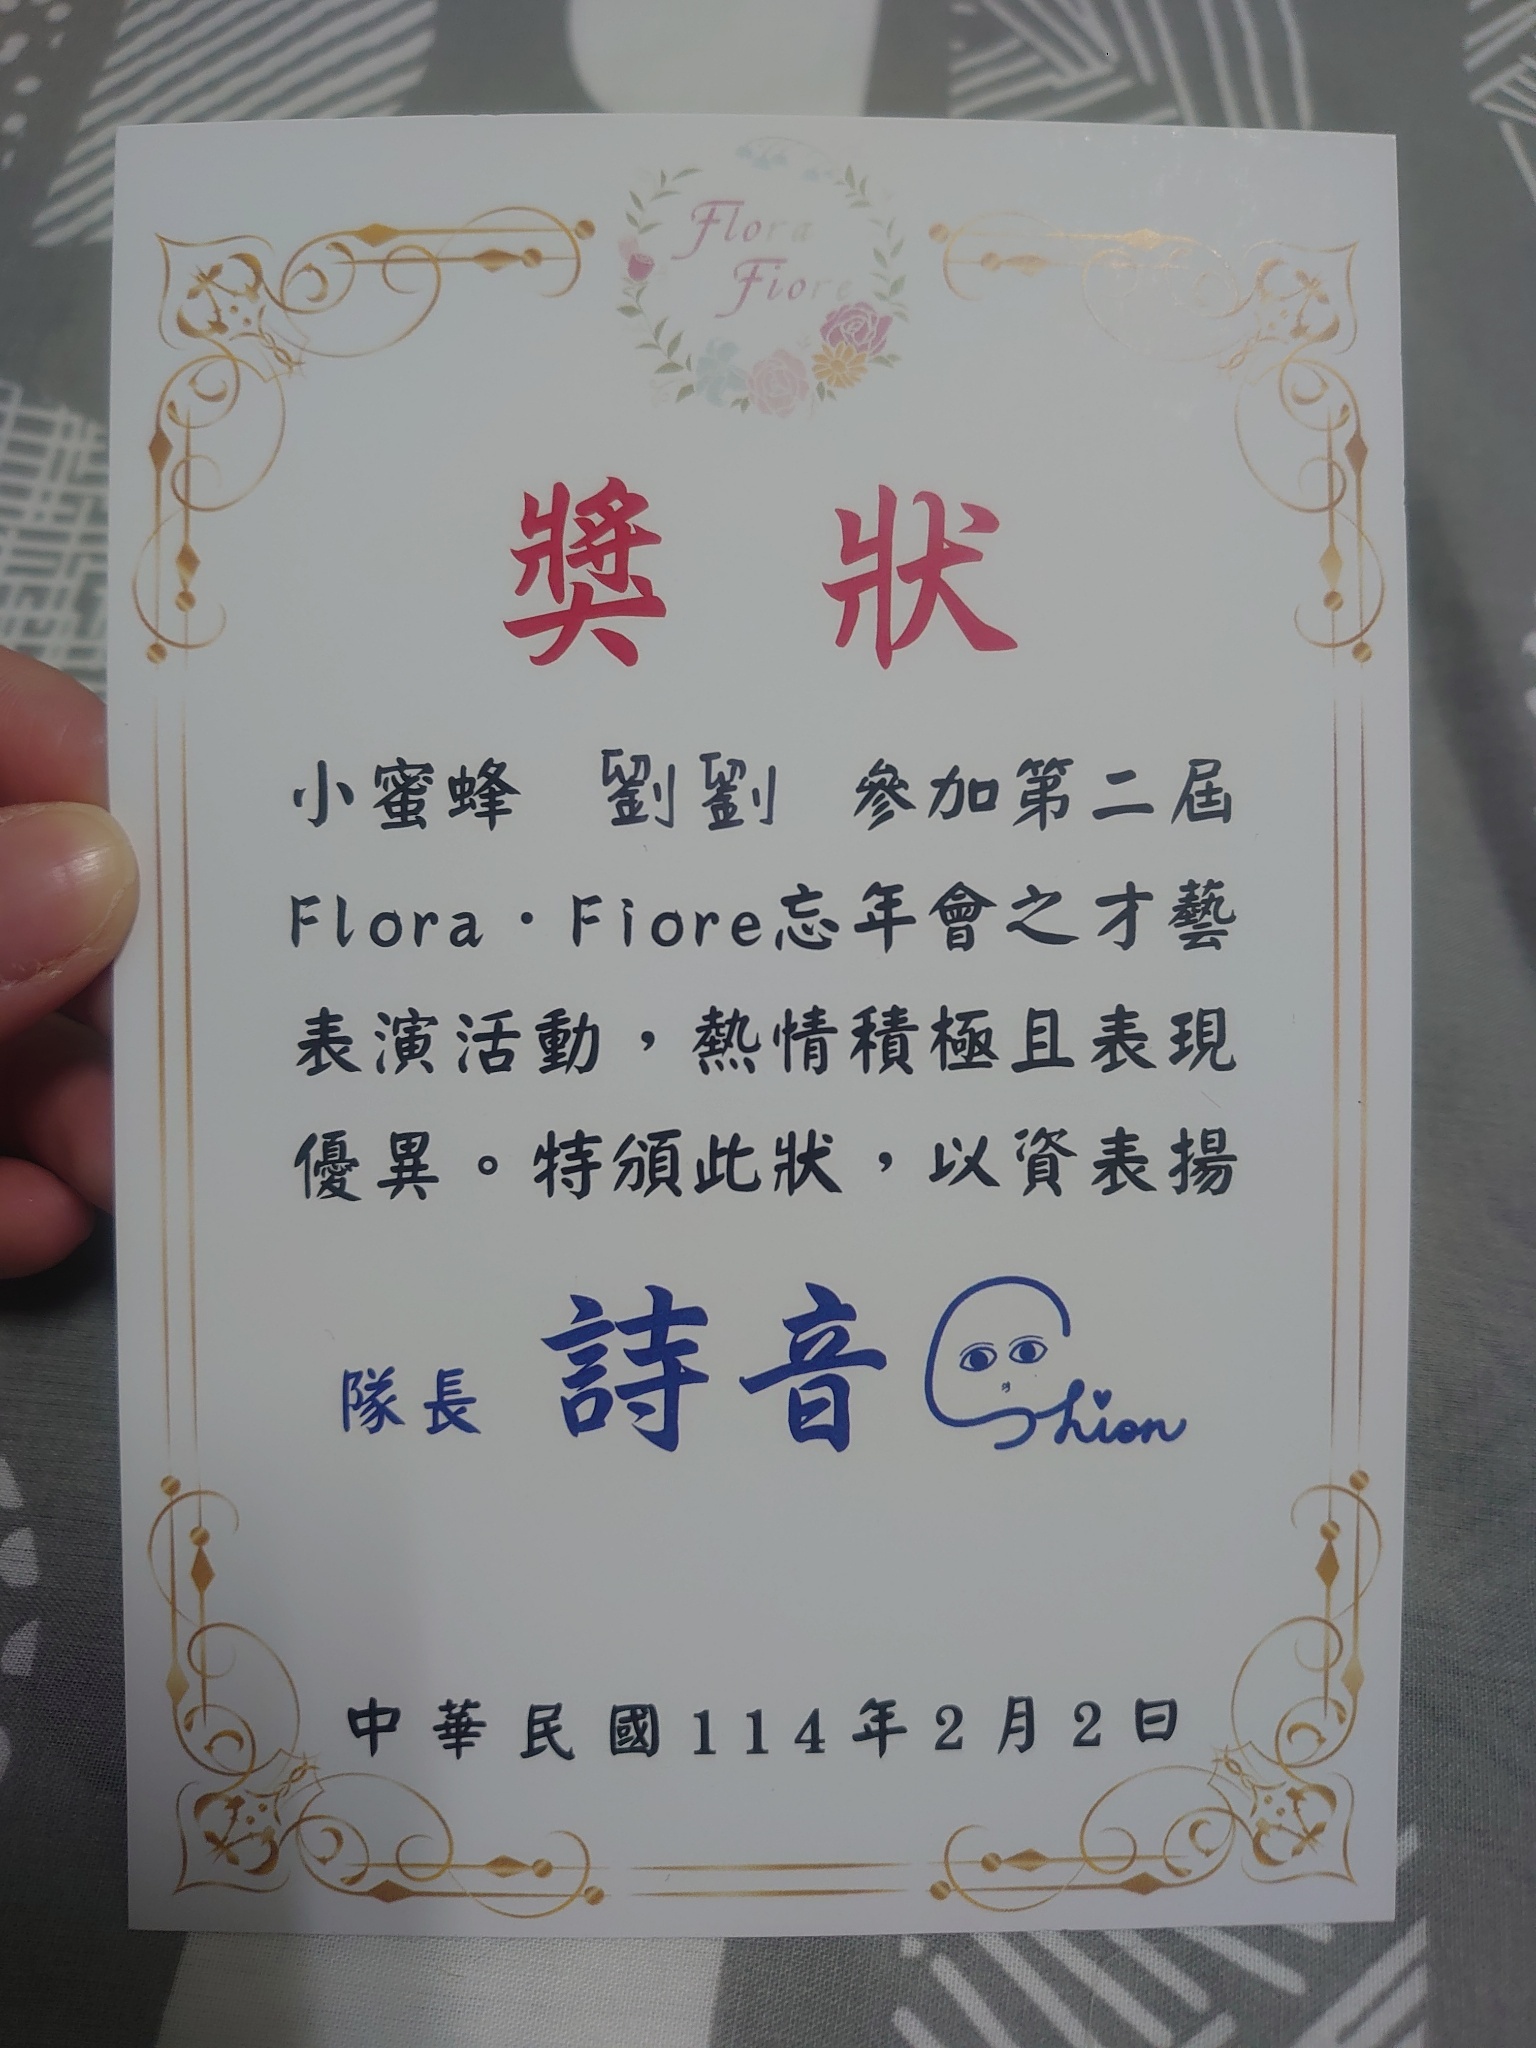 Flora
Fiore
獎 狀
小蜜蜂 劉劉 參加第二屆
Flora·Fiore忘年會之才藝
表演活動，熱情積極且表現
優異。特頒此狀，以資表揚
隊長 詩音 Shion
中華民國114年2月2日